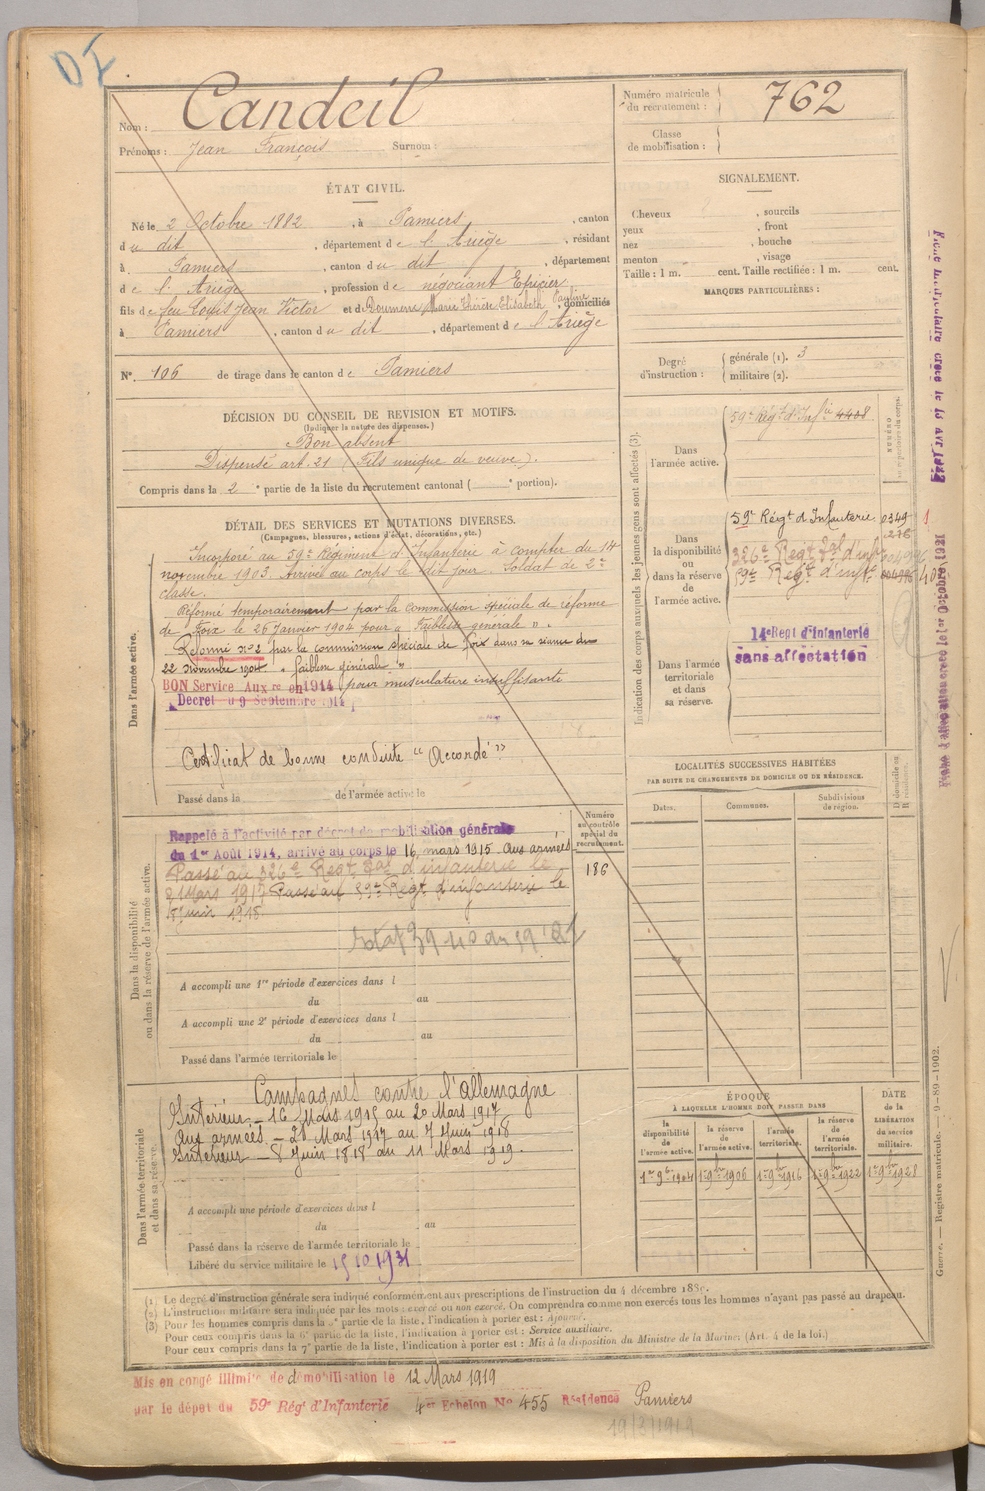 Nom : Candeil
Prénoms : Jean François Surnom :
Numéro matricule du recrutement : 762
Classe de mobilisation :
ÉTAT CIVIL.
Né le 2 Octobre 1882, à Pamiers, canton
du dit, département de l'Ariège, résidant
à Pamiers, canton du dit, département
de l'Ariège, profession de négociant Epicier
fils de feu Louis Jean Victor et de Doumenc Marie Thérèse Elisabeth Pauline, domiciliés
à Pamiers, canton du dit, département de l'Ariège
N° 106 de tirage dans le canton de Pamiers
DÉCISION DU CONSEIL DE REVISION ET MOTIFS.
(Indiquer la nature des dispenses.)
Bon absent
Dispensé art. 21 (Fils unique de veuve).
Compris dans la 2e partie de la liste du recrutement cantonal ( e portion).
DÉTAIL DES SERVICES ET MUTATIONS DIVERSES.
(Campagnes, blessures, actions d'éclat, décorations, etc.)
Dans l'armée active.
Incorporé au 59e Régiment d'Infanterie à compter du 14
novembre 1903. Arrivé au corps le dit jour. Soldat de 2e
classe.
Réformé temporairement par la commission spéciale de réforme
de Foix le 26 Janvier 1904 pour « Faiblesse générale ».
Réformé n° 2 par la commission spéciale de Foix dans sa séance du
22 novembre 1904 « faiblesse générale »
BON Service Auxre en 1914 pour musculature insuffisante
Décret du 9 Septembre 1914
Certificat de bonne conduite "Accordé"
Passé dans la de l'armée active le
Dans la disponibilité ou dans la réserve de l'armée active.
Rappelé à l'activité par décret de mobilisation générale
du 1er Août 1914, arrivé au corps le 16 mars 1915 Aux armées
Passé au 326e Regt d'infanterie le
Mars 1917 Passé au 59e Regt d'infanterie le
8 Juin 1918.
Numéro au contrôle spécial du recrutement.
186
A accompli une 1re période d'exercices dans l
du au
A accompli une 2e période d'exercices dans l
du au
Passé dans l'armée territoriale le
Dans l'armée territoriale et dans sa réserve.
Campagnes contre l'Allemagne
Intérieur – 16 Mars 1915 au 20 Mars 1917
Aux armées – 21 Mars 1917 au 7 Juin 1918
Intérieur – 8 Juin 1918 au 11 Mars 1919.
A accompli une période d'exercices dans l
du au
Passé dans la réserve de l'armée territoriale le
Libéré du service militaire le 15 10 1931
SIGNALEMENT.
Cheveux, sourcils
yeux, front
nez, bouche
menton, visage
Taille : 1 m. cent. Taille rectifiée : 1 m. cent.
MARQUES PARTICULIÈRES :
Degré d'instruction : générale (1). 3
militaire (2).
Indication des corps auxquels les jeunes gens sont affectés (3).
NUMÉRO
Dans l'armée active. 59e Régt d'Infie 4408
Dans la disponibilité ou dans la réserve de l'armée active.
59e Régt d'Infanterie 0349
326e Regt
59e Regt d'infie
Dans l'armée territoriale et dans sa réserve.
14e Regt d'Infanterie
sans affectation
LOCALITÉS SUCCESSIVES HABITÉES
PAR SUITE DE CHANGEMENTS DE DOMICILE OU DE RÉSIDENCE.
Dates. Communes. Subdivisions de région. D. domicile ou R. résidence.
ÉPOQUE
À LAQUELLE L'HOMME DOIT PASSER DANS
la disponibilité de l'armée active. la réserve de l'armée active. l'armée territoriale. la réserve de l'armée territoriale.
DATE de la LIBÉRATION du service militaire.
1er 9bre 1904 1er 9bre 1906 1er 9bre 1916 1er 9bre 1922 1er 9bre 1928
Guerre. — Registre matricule. — 9-89-1902.
(1) Le degré d'instruction générale sera indiqué conformément aux prescriptions de l'instruction du 4 décembre 1889.
(2) L'instruction militaire sera indiquée par les mots : exercé ou non exercé. On comprendra comme non exercés tous les hommes n'ayant pas passé au drapeau.
(3) Pour les hommes compris dans la e partie de la liste, l'indication à porter est : Ajourné.
Pour ceux compris dans la 6e partie de la liste, l'indication à porter est : Service auxiliaire.
Pour ceux compris dans la 7e partie de la liste, l'indication à porter est : Mis à la disposition du Ministre de la Marine. (Art. 4 de la loi.)
Mis en congé illimité de démobilisation le 12 Mars 1919
par le dépôt du 59e Régt d'Infanterie 4er Echelon No 455 Résidence Pamiers
19/3/1919